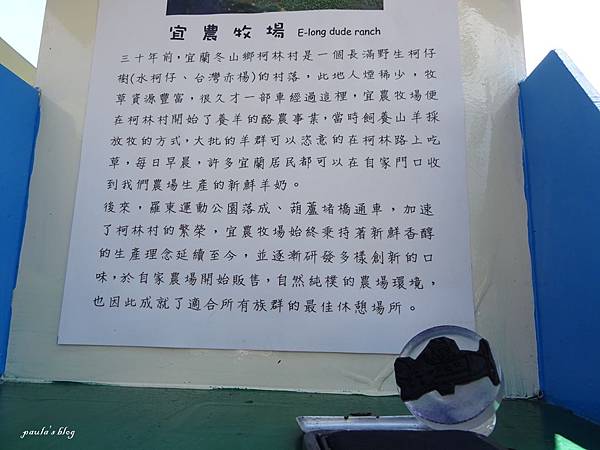 宜農牧場 E-long dude ranch
三十年前，宜蘭冬山鄉柯林村是一個長滿野生柯仔
樹(水柯仔、台灣赤楊)的村落，此地人煙稀少，牧
草資源豐富，很久才一部車經過這裡，宜農牧場便
在柯林村開始了養羊的酪農事業，當時飼養山羊採
放牧的方式，大批的羊群可以恣意的在柯林路上吃
草，每日早晨，許多宜蘭居民都可以在自家門口收
到我們農場生產的新鮮羊奶。
後來，羅東運動公園落成、葫蘆堵橋通車，加速
了柯林村的繁榮，宜農牧場始終秉持著新鮮香醇
的生產理念延續至今，並逐漸研發多樣創新的口
味，於自家農場開始販售，自然純樸的農場環境，
也因此成就了適合所有族群的最佳休憩場所。
paula's blog